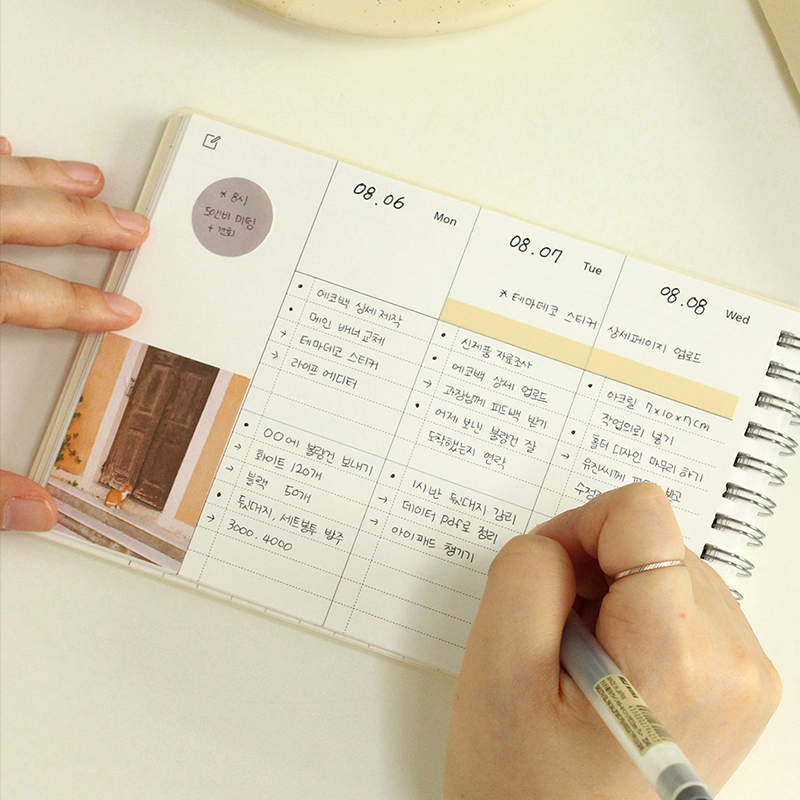 * 8시
+ 견회
08.06 Mon
에코백 상세 제작
메인 배너 교체
→ 테마데코 스티커
→ 라이프 에디터
• 00에 불량건 보내기
→ 화이트 120개
→ 블랙 50개
• 뒷대지, 세트봉투 발주
→ 3000, 4000
08.07 Tue
* 테마데코 스티커 상세페이지 업로드
• 신제품 자료조사
• 에코백 상세 업로드
→ 과장님께 피드백 받기
• 어제 보낸 불량건 잘
도착했는지 연락
• 1시반 뒷대지 감리
→ 데이터 pdf로 정리
→ 아이패드 챙기기
08.08 Wed
• 아크릴 7x10x7cm
작업의뢰 넣기
• 홀더 디자인 마무리 하기
→ 유진씨께